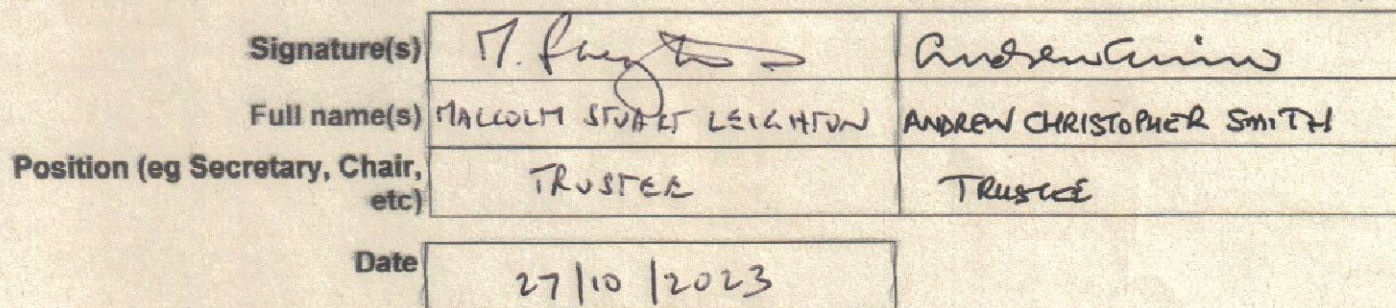 Signature(s) M. Leighton Andrew Smith
Full name(s) MALCOLM STUART LEIGHTON ANDREW CHRISTOPHER SMITH
Position (eg Secretary, Chair, TRUSTEE TRUSTEE
etc)
Date 27/10/2023